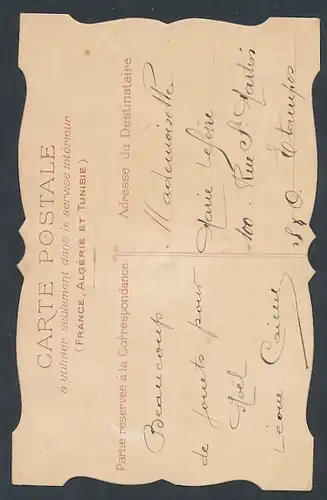 CARTE POSTALE
à utiliser seulement dans le service intérieur
(FRANCE, ALGÉRIE ET TUNISIE)
Partie réservée à la Correspondance
Adresse du Destinataire
Beaucoup
de jouets pour
Noël
Mademoiselle
Marie
100 Rue St Martin
Etampes